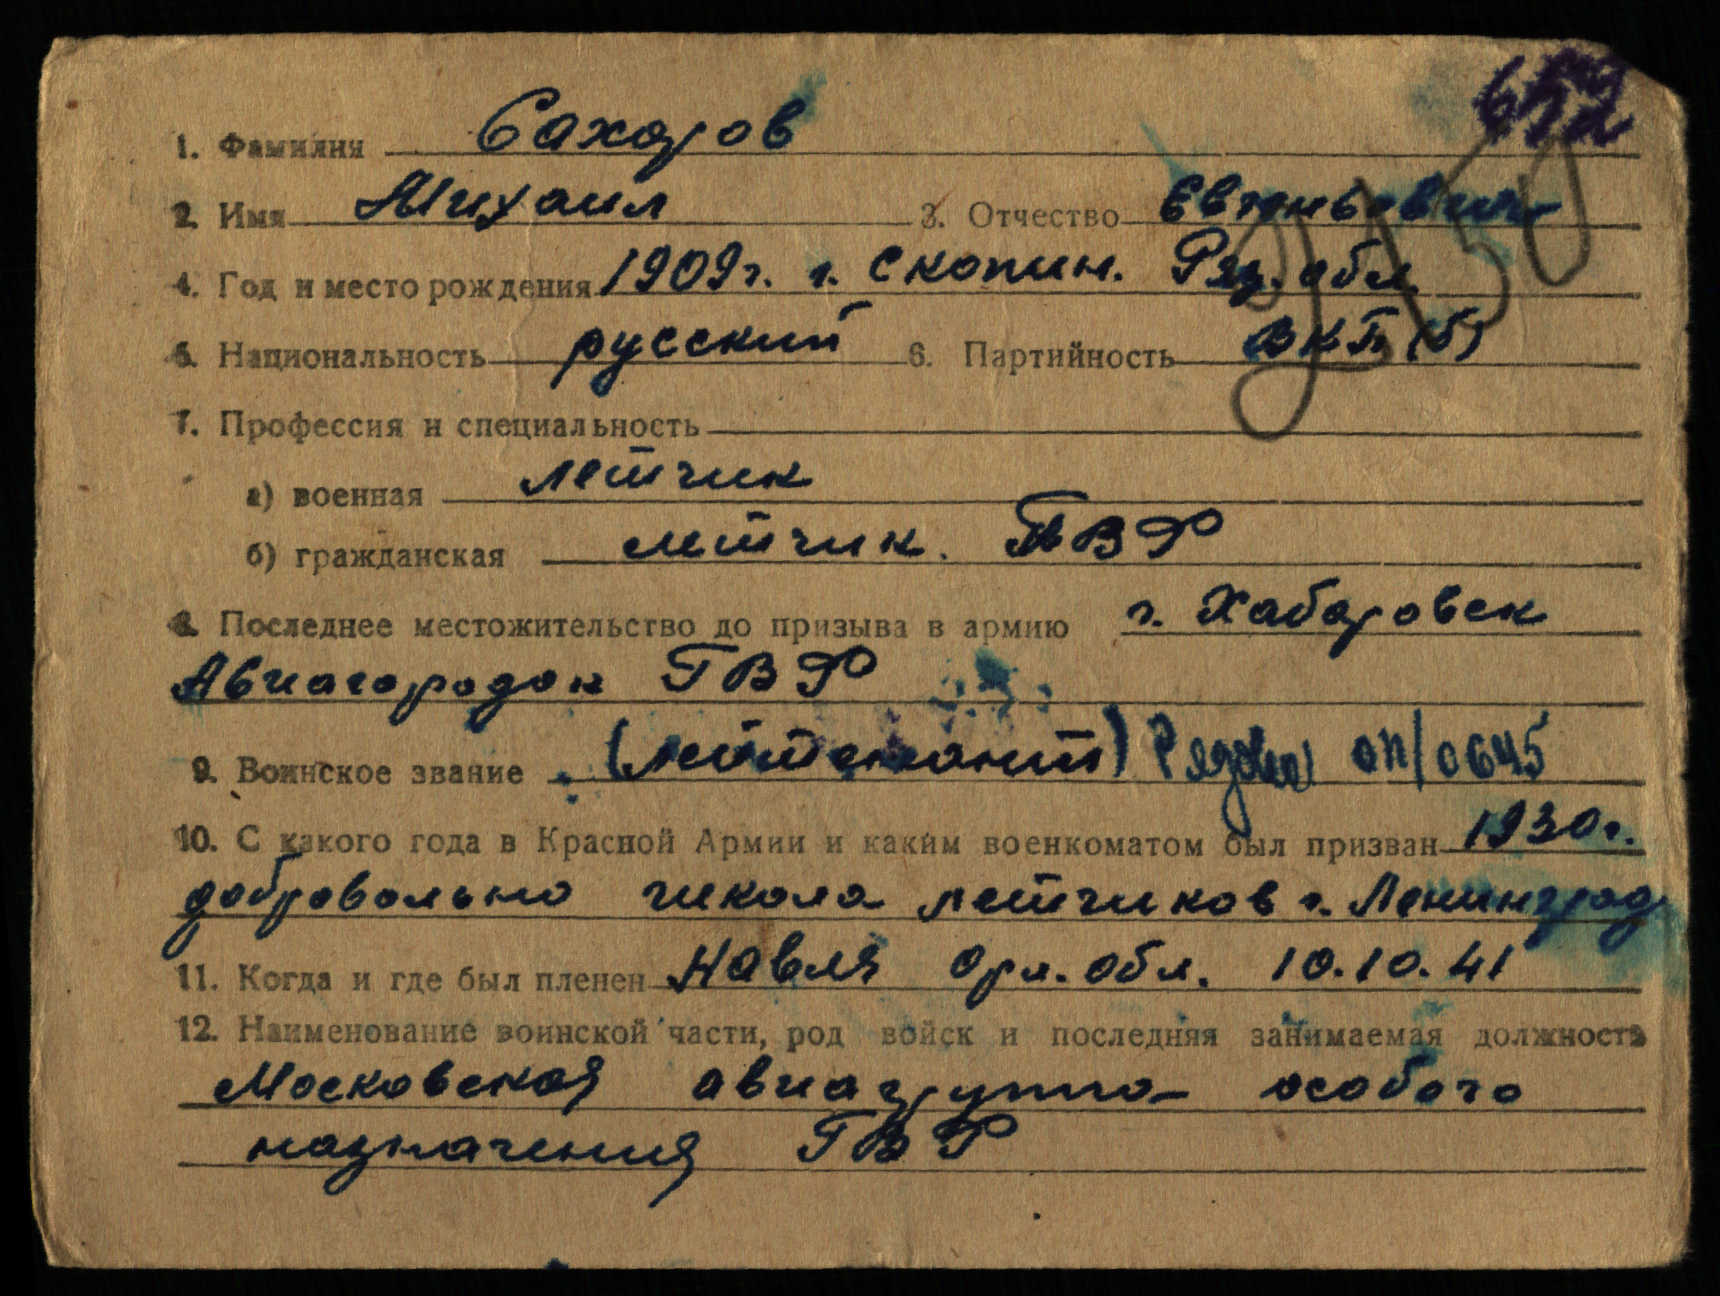 652
1. Фамилия Сахаров
2. Имя Михаил 3. Отчество
4. Год и место рождения 1909г. г. Скопин. Ряз. обл.
5. Национальность русский 6. Партийность ВКП(б)
7. Профессия и специальность
а) военная летчик
б) гражданская летчик. ГВФ
8. Последнее местожительство до призыва в армию г. Хабаровск
Авиагородок ГВФ
9. Воинское звание (лейтенант) Рядовой оп/0645
10. С какого года в Красной Армии и каким военкоматом был призван 1930г.
добровольно школа летчиков г. Ленинград
11. Когда и где был пленен Навля Орл. обл. 10.10.41
12. Наименование воинской части, род войск и последняя занимаемая должность
Московская авиагруппа особого
назначения ГВФ